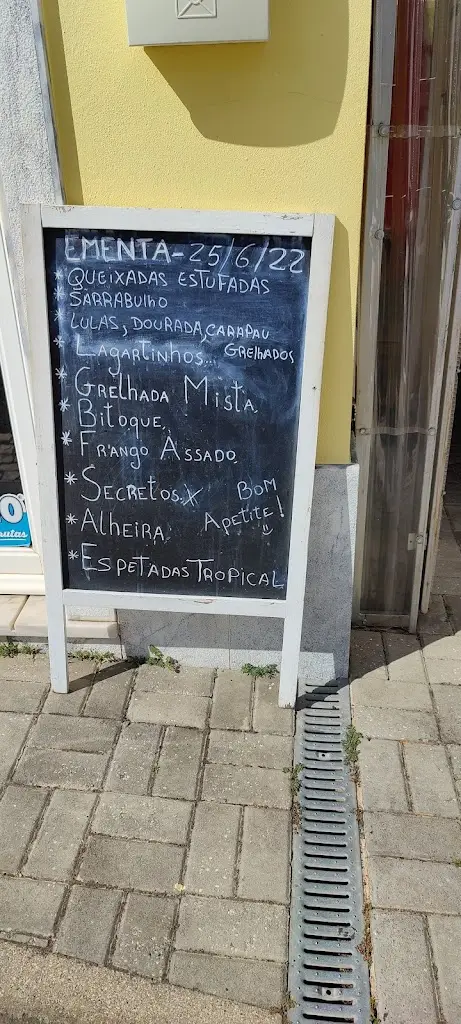 EMENTA - 25/6/22
* QUEIXADAS ESTUFADAS
* SARRABULHO
* LULAS, DOURADA, CARAPAU
* LAGARTINHOS... GRELHADOS
* GRELHADA MISTA.
* BITOQUE.
* FRANGO ASSADO.
* SECRETOS..X
BOM
APETITE!
* ALHEIRA.
* ESPETADAS TROPICAL